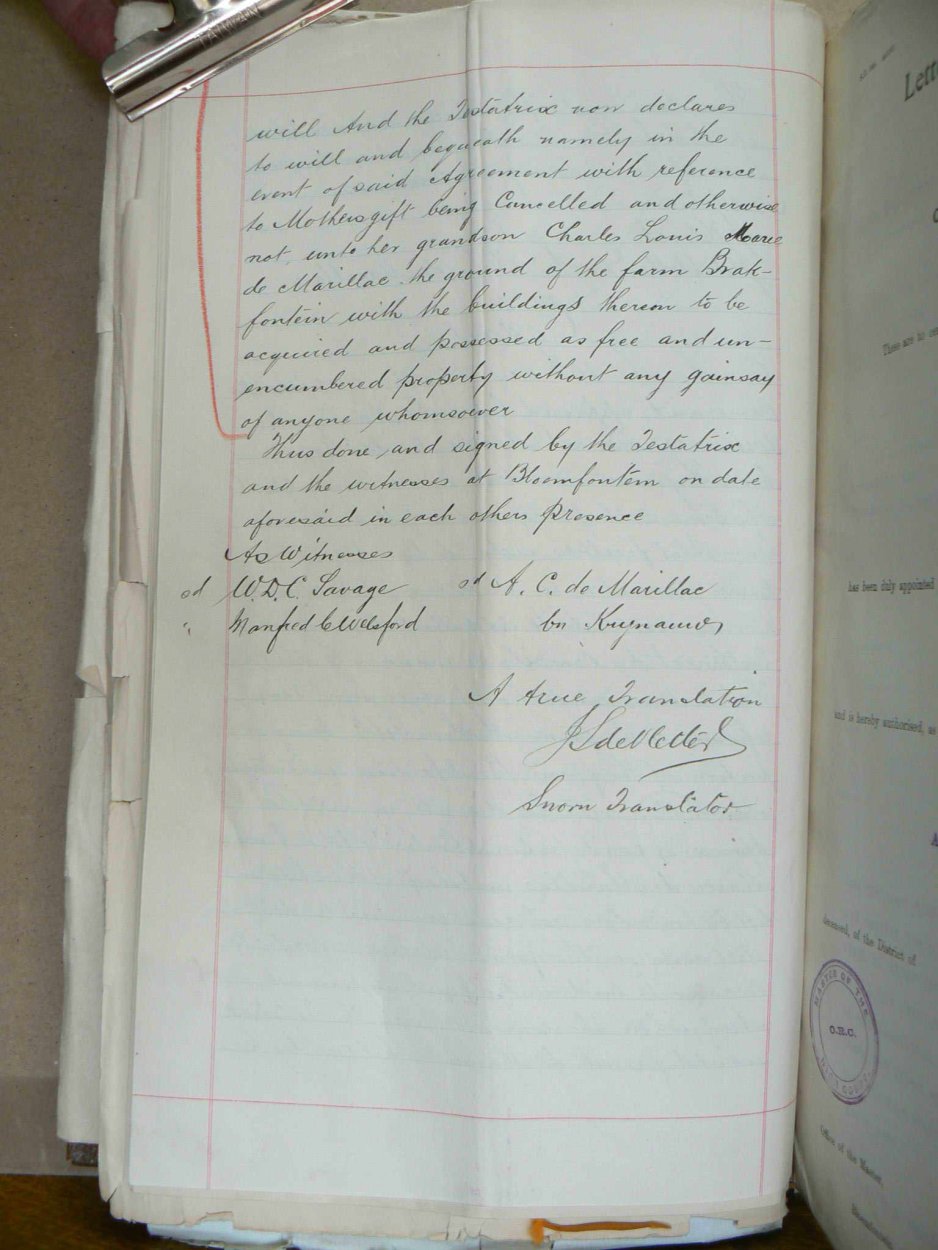 will And the Testatrix now declares
to will and bequeath namely in the
event of said Agreement with reference
to Mothersgift being Cancelled and otherwise
not, unto her grandson Charles Louis Marie
de Marillac the ground of the farm Brak-
fontein with the buildings thereon to be
acquired and possessed as free and un-
encumbered property without any gainsay
of anyone whomsoever
Thus done and signed by the Testatrix
and the witnesses at Bloemfontein on date
aforesaid in each others presence
As Witnesses
sd W.D.C. Savage sd A. C. de Marillac
" Manfred C Welsford bn
A true Translation
Sworn Translator
Lett
These are to
has been duly appointed
and is hereby authorised, as
deceased, of the District of
MASTER OF THE
O.R.C.
Office of the Master,